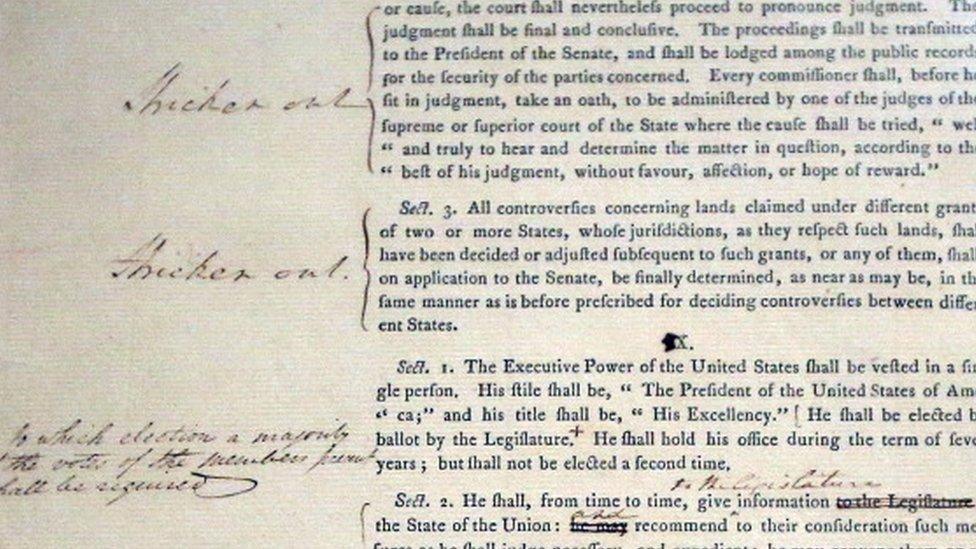 or cauſe, the court ſhall nevertheleſs proceed to pronounce judgment. The
judgment ſhall be final and concluſive. The proceedings ſhall be tranſmitted
to the Preſident of the Senate, and ſhall be lodged among the public records
for the ſecurity of the parties concerned. Every commiſſioner ſhall, before he
Stricken out
ſit in judgment, take an oath, to be adminiſtered by one of the judges of the
ſupreme or ſuperior court of the State where the cauſe ſhall be tried, “ wel
“ and truly to hear and determine the matter in queſtion, according to the
“ beſt of his judgment, without favour, affection, or hope of reward.”
Sect. 3. All controverſies concerning lands claimed under different grant
of two or more States, whoſe juriſdictions, as they reſpect ſuch lands, ſhal
have been decided or adjuſted ſubſequent to ſuch grants, or any of them, ſhall
Stricken out.
on application to the Senate, be finally determined, as near as may be, in th
ſame manner as is before preſcribed for deciding controverſies between differ
ent States.
X.
Sect. 1. The Executive Power of the United States ſhall be veſted in a ſin
gle perſon. His ſtile ſhall be, “ The Preſident of the United States of Ame
“ ca;” and his title ſhall be, “ His Excellency.” [ He ſhall be elected b
ballot by the Legiſlature.+ He ſhall hold his office during the term of ſeve
years ; but ſhall not be elected a ſecond time.
to which election a majority
the votes of the members preſent
shall be required
to the legislature
Sect. 2. He ſhall, from time to time, give information to the Legiſlature
and
the State of the Union: he may recommend to their conſideration ſuch me
ſures as he ſhall judge neceſſary, and expedient: he may